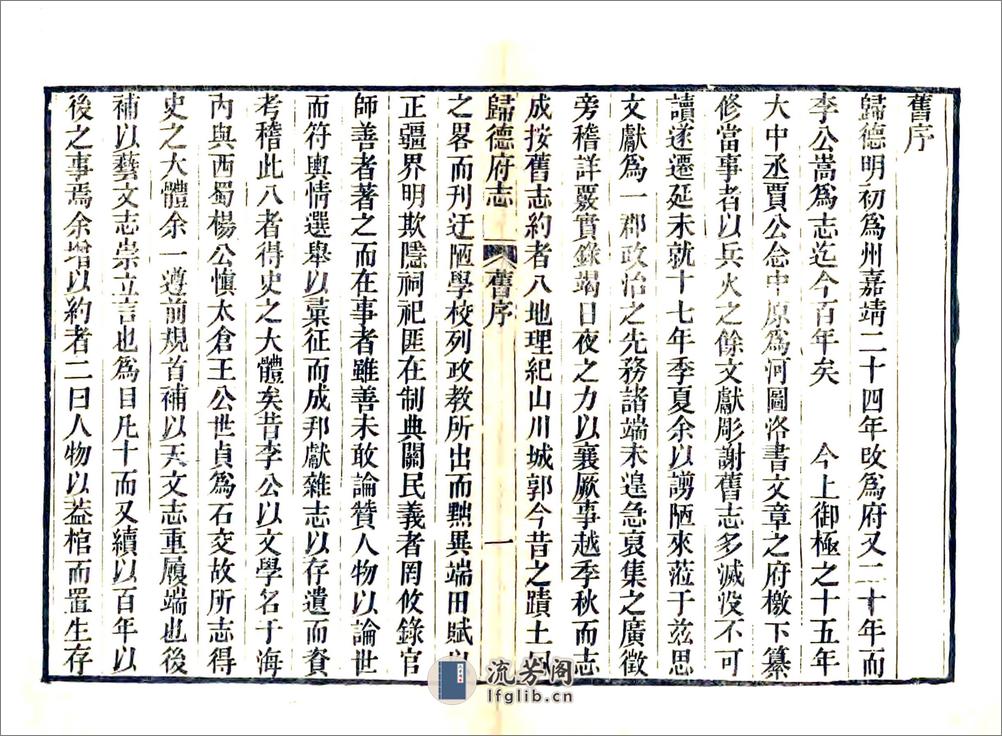 舊序
歸德明初爲州嘉靖二十四年改爲府又二十年而
李公嵩爲志迄今百年矣　今上御極之十五年
大中丞賈公念中原爲河圖洛書文章之府檄下纂
修當事者以兵火之餘文獻彫謝舊志多滅沒不可
讀遂遷延未就十七年季夏余以謭陋來蒞于茲思
文獻爲一郡政治之先務諸端未遑急裒集之廣徵
旁稽詳覈實錄竭日夜之力以襄厥事越季秋而志
成按舊志約者八地理紀山川城郭今昔之蹟土
歸德府志
舊序
一
之畧而刊迂陋學校列政教所出而黜異端田賦以
正疆界明欺隱祠祀匪在制典關民義者罔攸錄官
師善者著之而在事者雖善未敢論贊人物以論世
而符輿情選舉以彙征而成邦獻雜志以存遺而資
考稽此八者得史之大體矣昔李公以文學名于海
內與西蜀楊公慎太倉王公世貞爲石交故所志得
史之大體余一遵前規首補以天文志重履端也後
補以藝文志崇立言也爲目凡十而又續以百年以
後之事焉余增以約者二曰人物以蓋棺而置生存
流芳阁
lfglib.cn